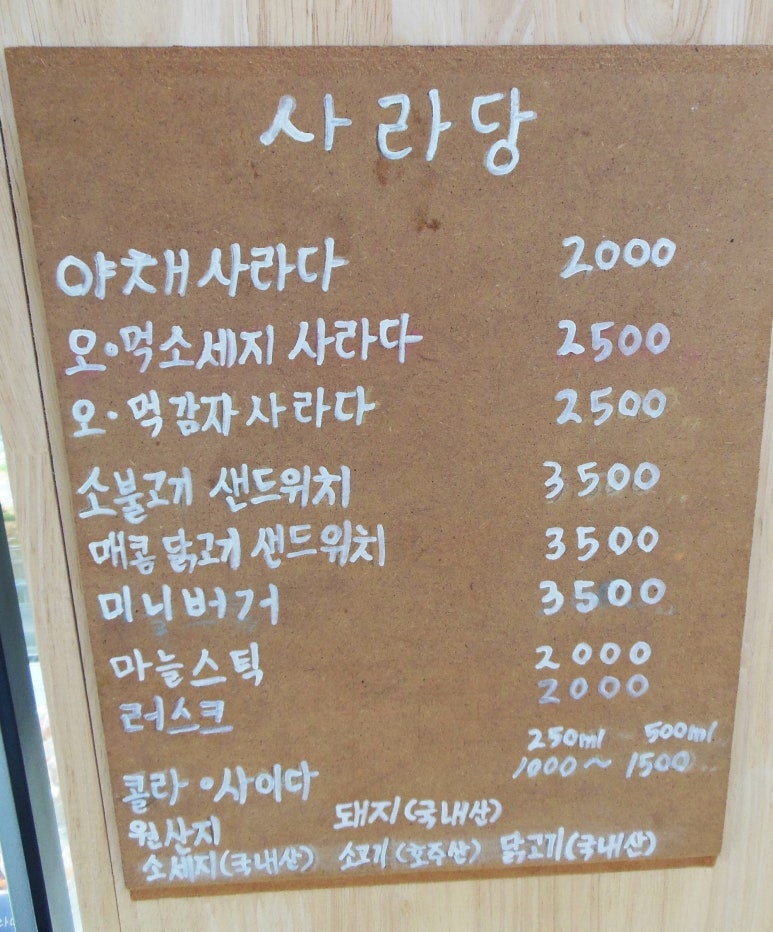 사라당
야채사라다 2000
오·먹소세지 사라다 2500
오·먹감자사라다 2500
소불고기 샌드위치 3500
매콤닭고기 샌드위치 3500
미니버거 3500
마늘스틱 2000
러스크 2000
250ml 500ml
콜라·사이다 1000~1500
원산지 돼지(국내산)
소세지(국내산) 소고기(호주산) 닭고기(국내산)